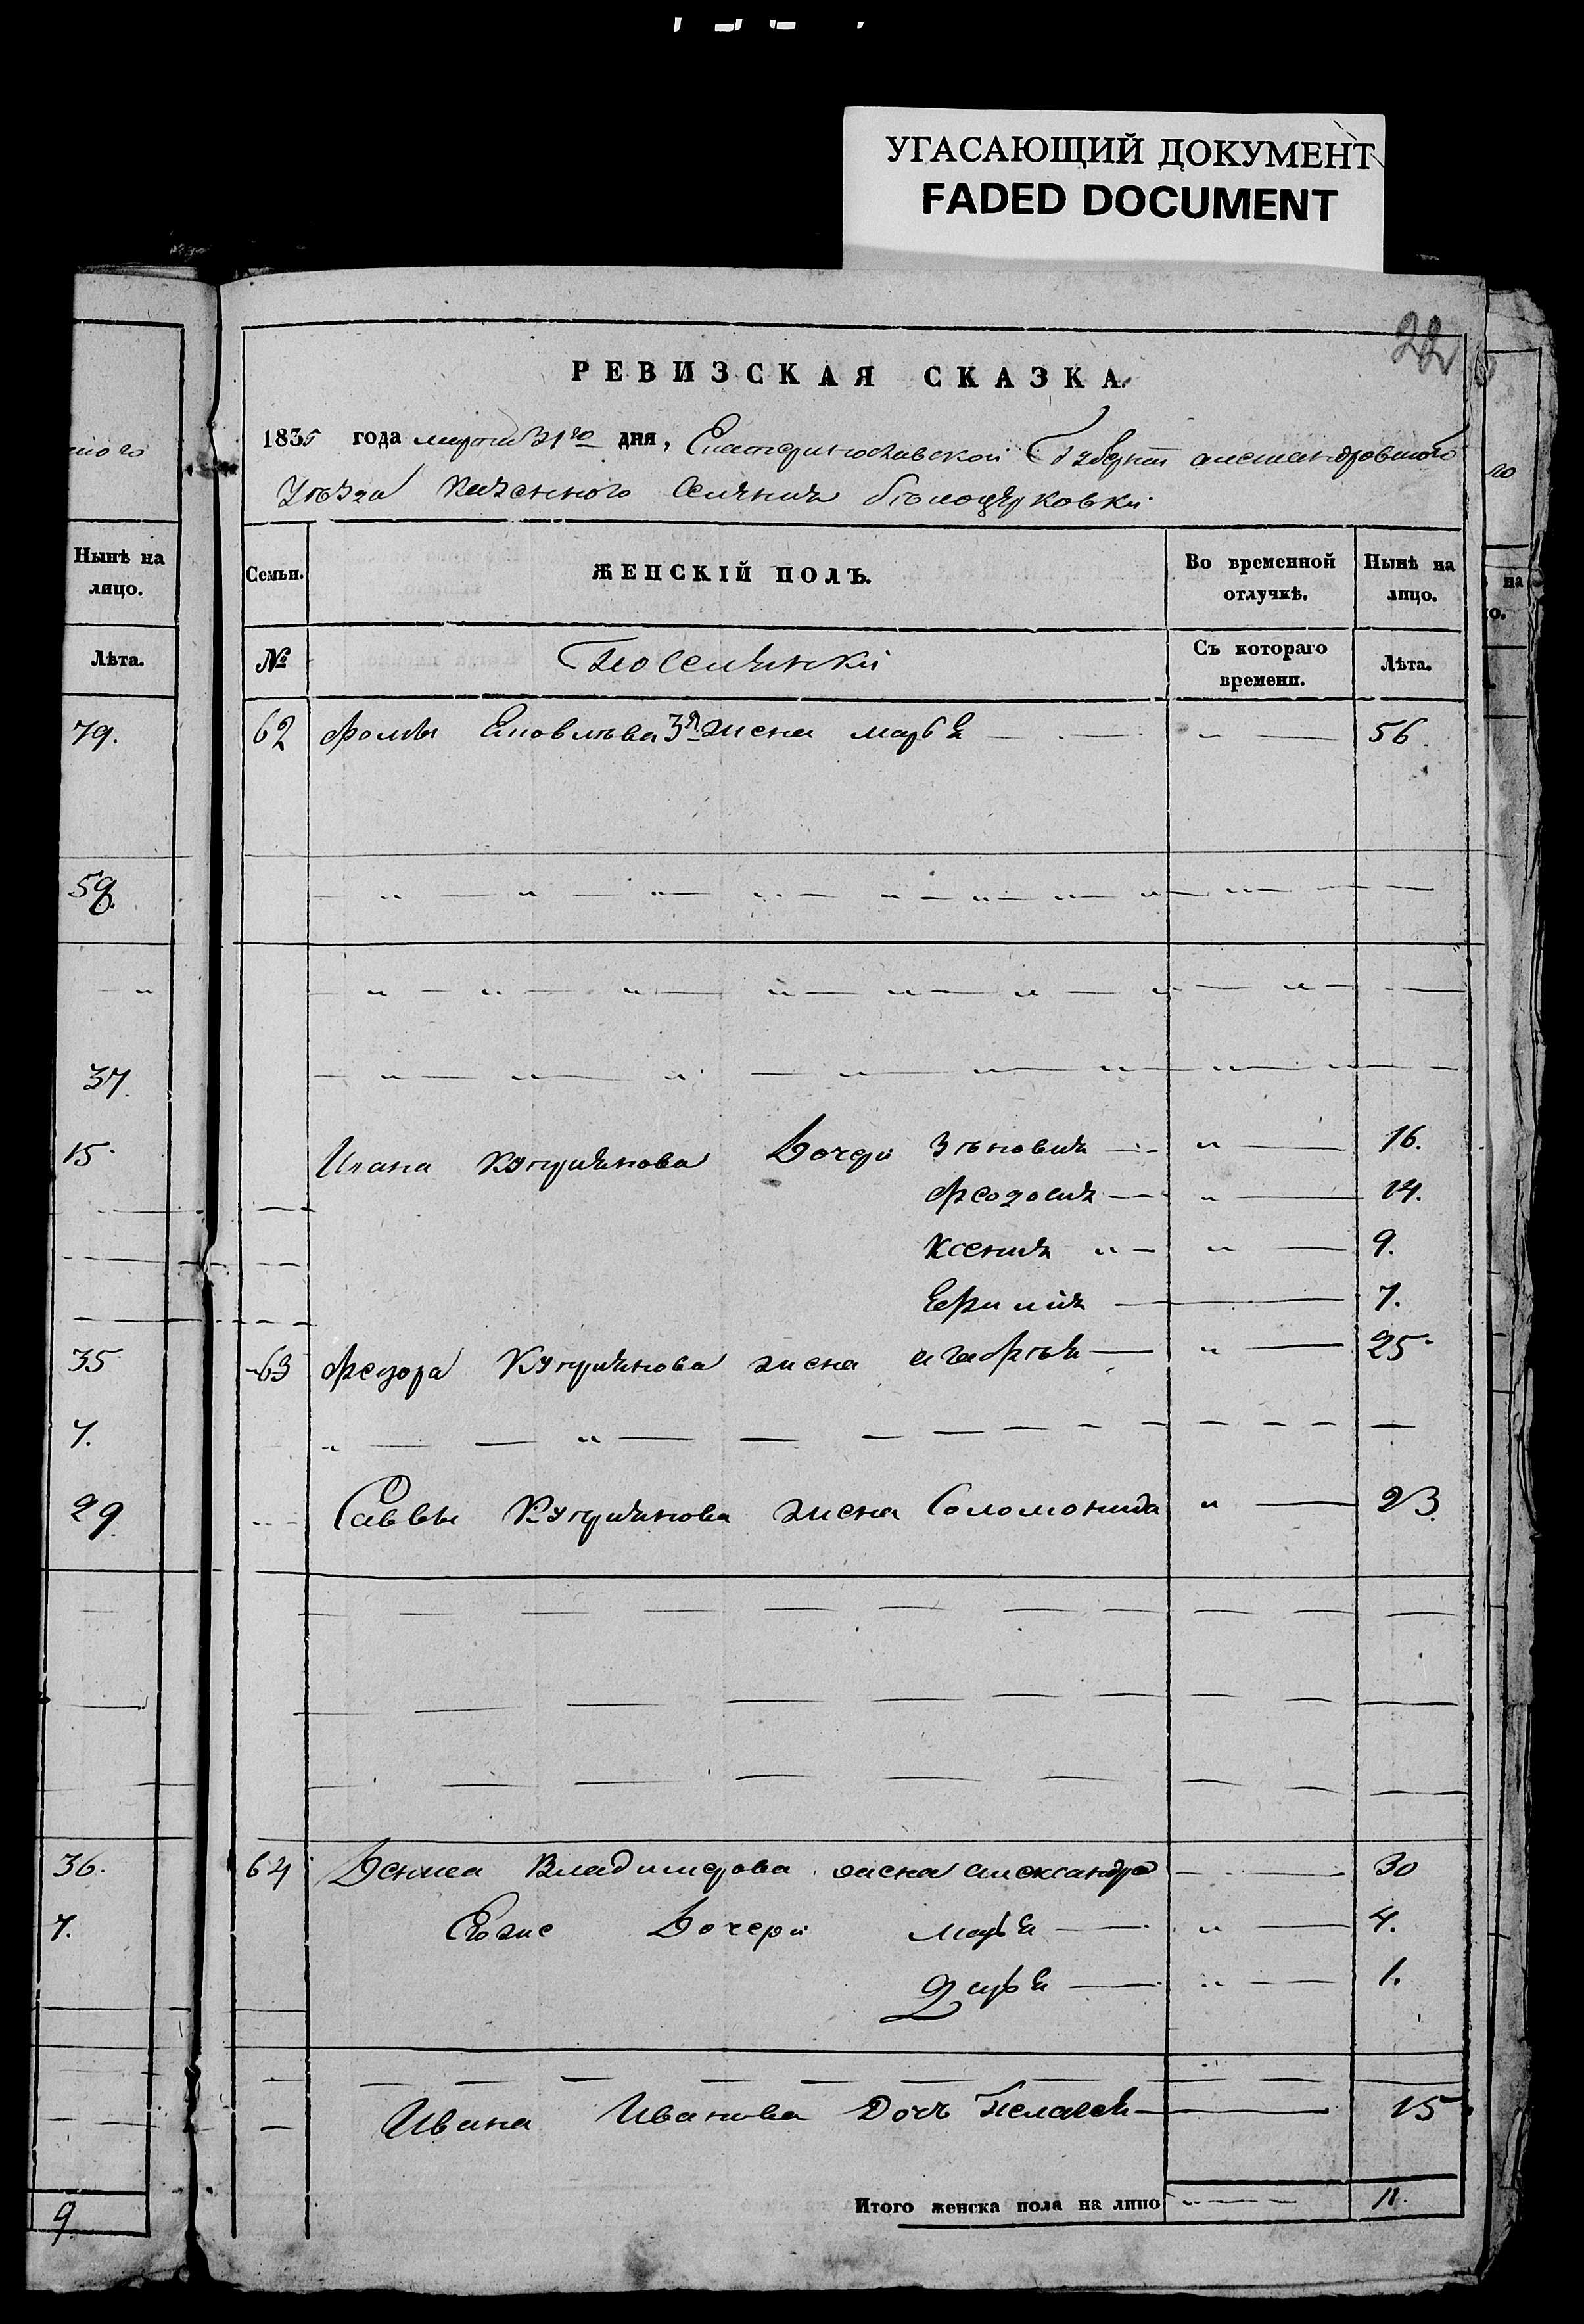 УГАСАЮЩИЙ ДОКУМЕНТ
FADED DOCUMENT
22
РЕВИЗСКАЯ СКАЗКА.
1835 года марта 31го дня, Екатеринославской Губернiи александровского
Уѣзда Казенного Селения бѣлоцерковки
ного
Нынѣ на лицо.
Лѣта.
Семьи.
ЖЕНСКІЙ ПОЛЪ.
Во временной отлучкѣ.
Нынѣ на лицо.
№
Поселянки
Съ котораго времени.
Лѣта.
79.
62 Фомы Яковлева 3я жена марья 56.
59.
37.
15. Ивана Куприянова Дочери Зѣновия 16.
Феодосия 14.
Ксения 9.
Ефимiя 7.
35 63 Федора Куприянова жена агафья 25
7.
29. Саввы Куприянова жена Соломонида 23.
36. 64 Демида Владимерова жена александра 30
7. Егоже Дочери марья 4.
Дарья 1.
Ивана Иванова Дочь Пелагея 15
Итого женска пола на лицо 11.
9.